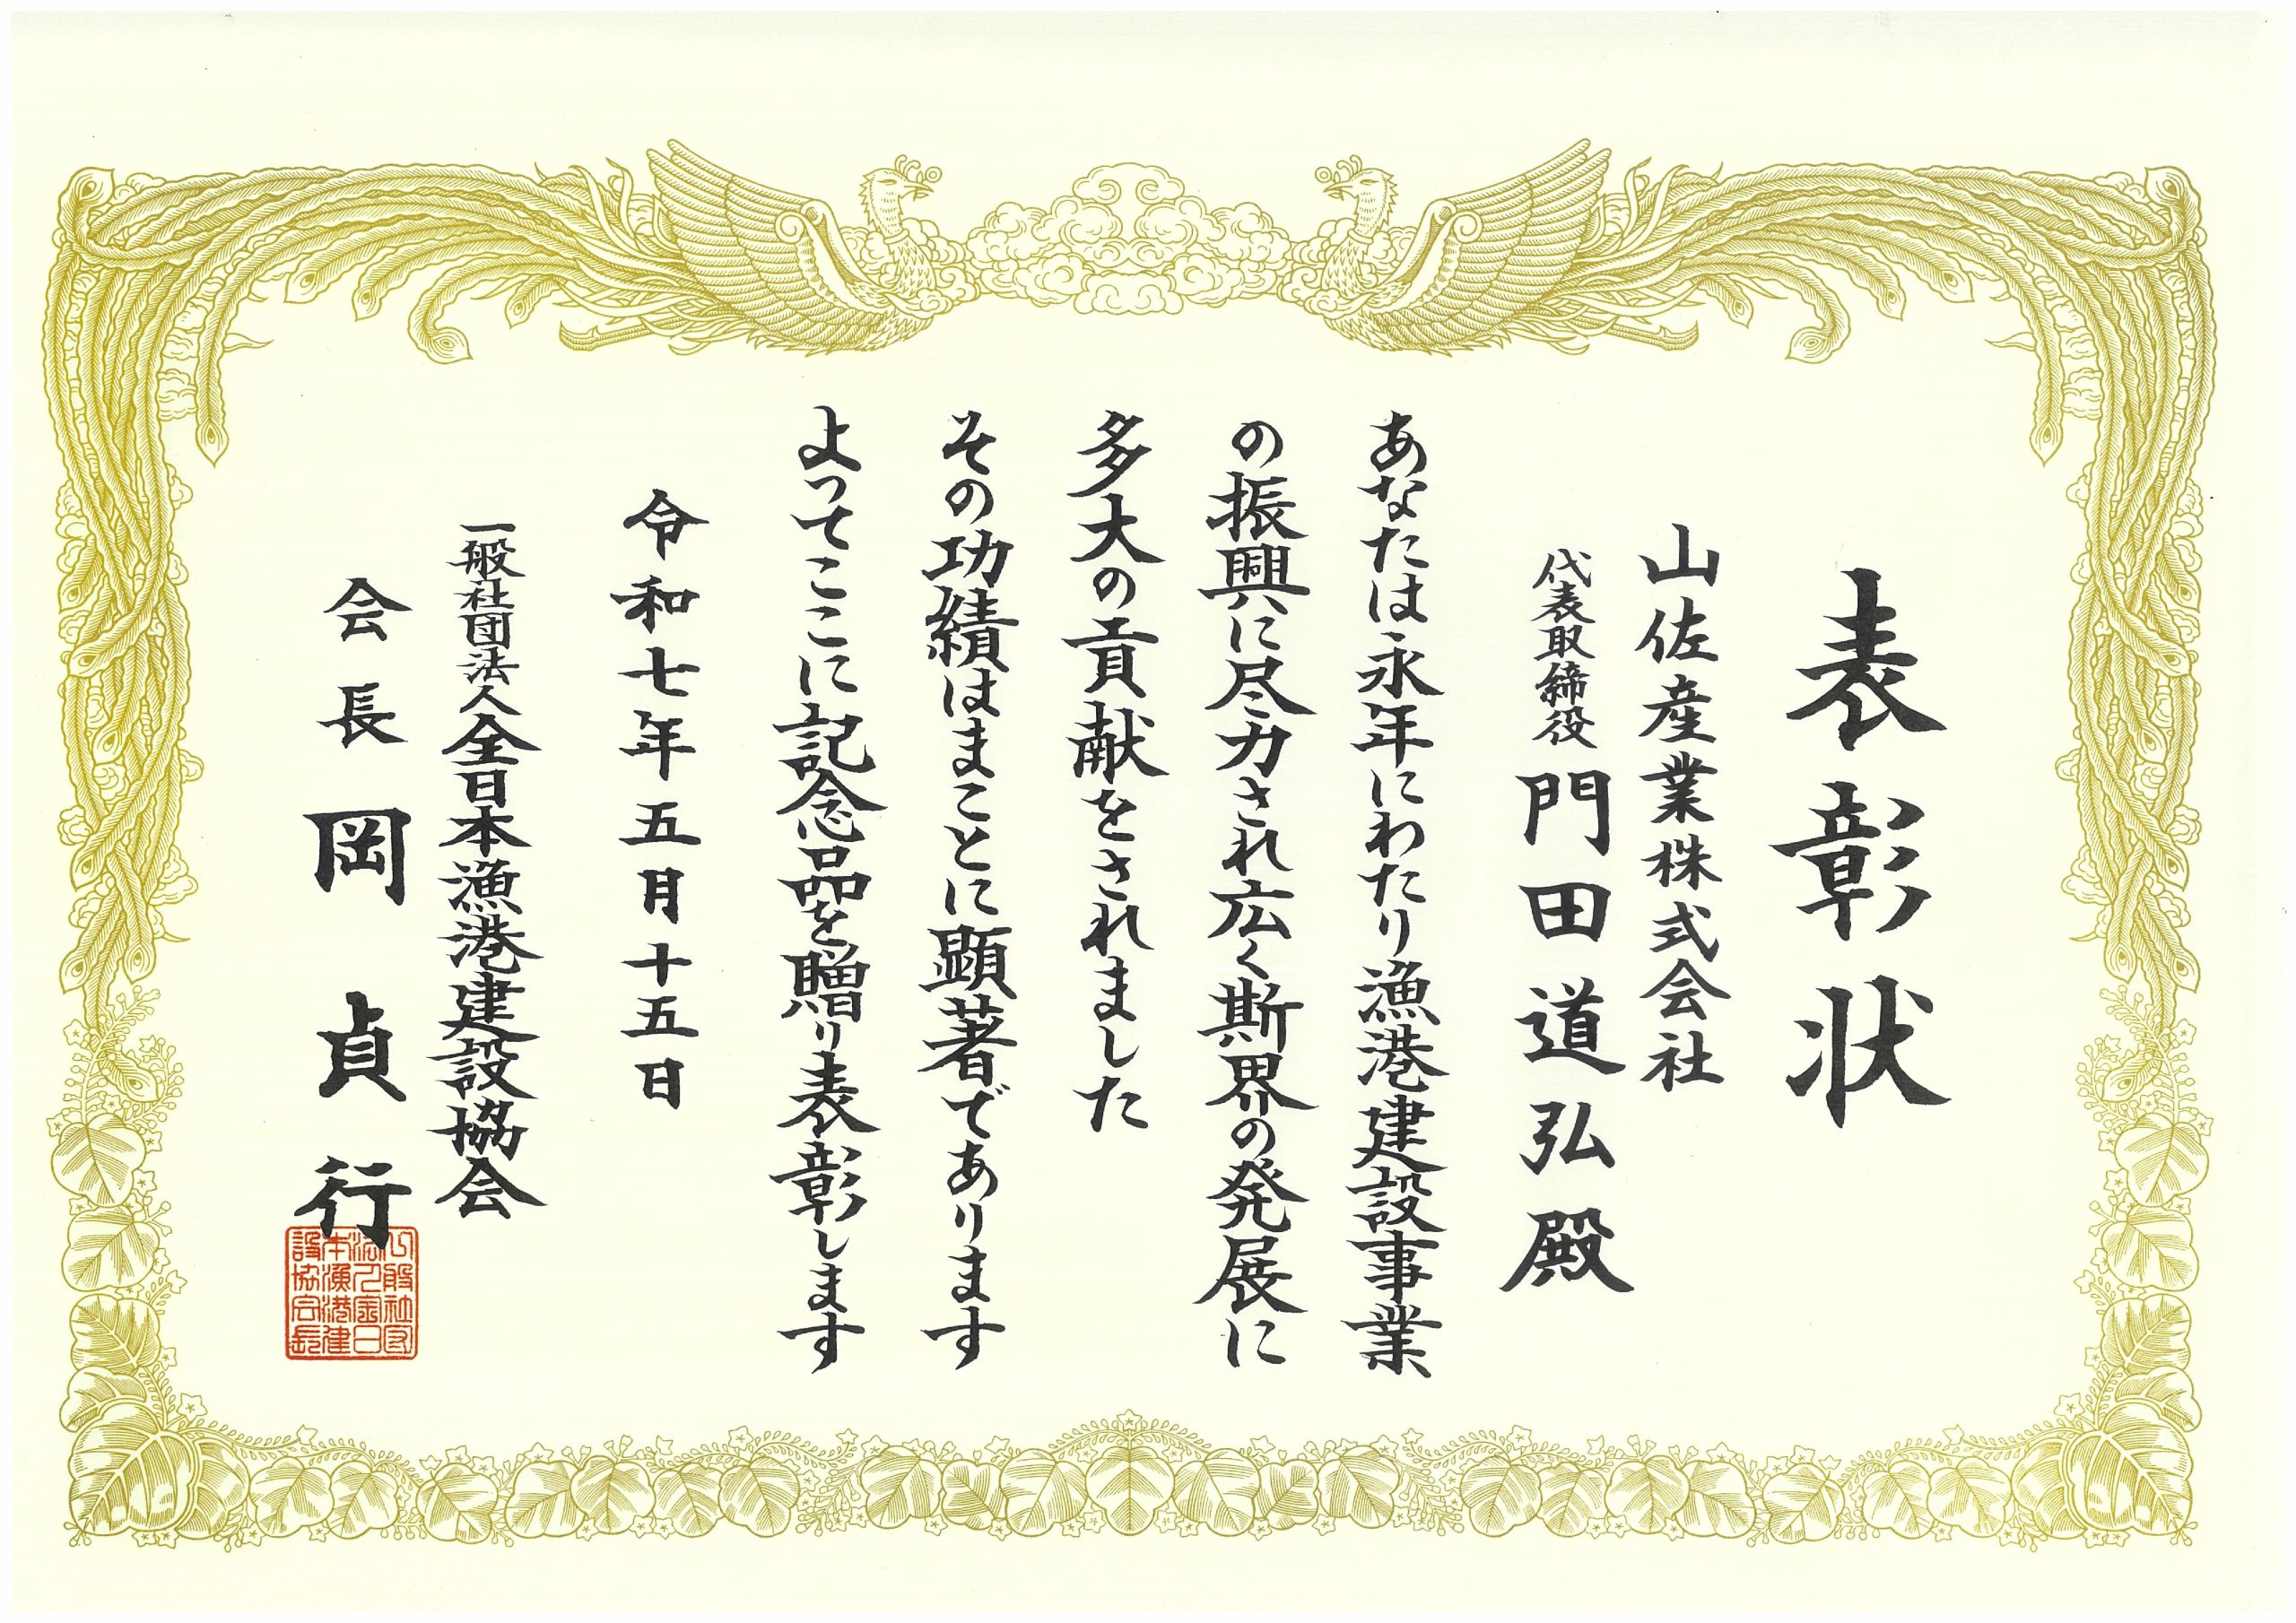 表彰状
山佐産業株式会社
代表取締役 門田道弘殿
あなたは永年にわたり漁港建設事業
の振興に尽力され広く斯界の発展に
多大の貢献をされました
その功績はまことに顕著であります
よってここに記念品を贈り表彰します
令和七年五月十五日
一般社団法人全日本漁港建設協会
会長 岡貞行
一般社団
法人全日
本漁港建
設協会長